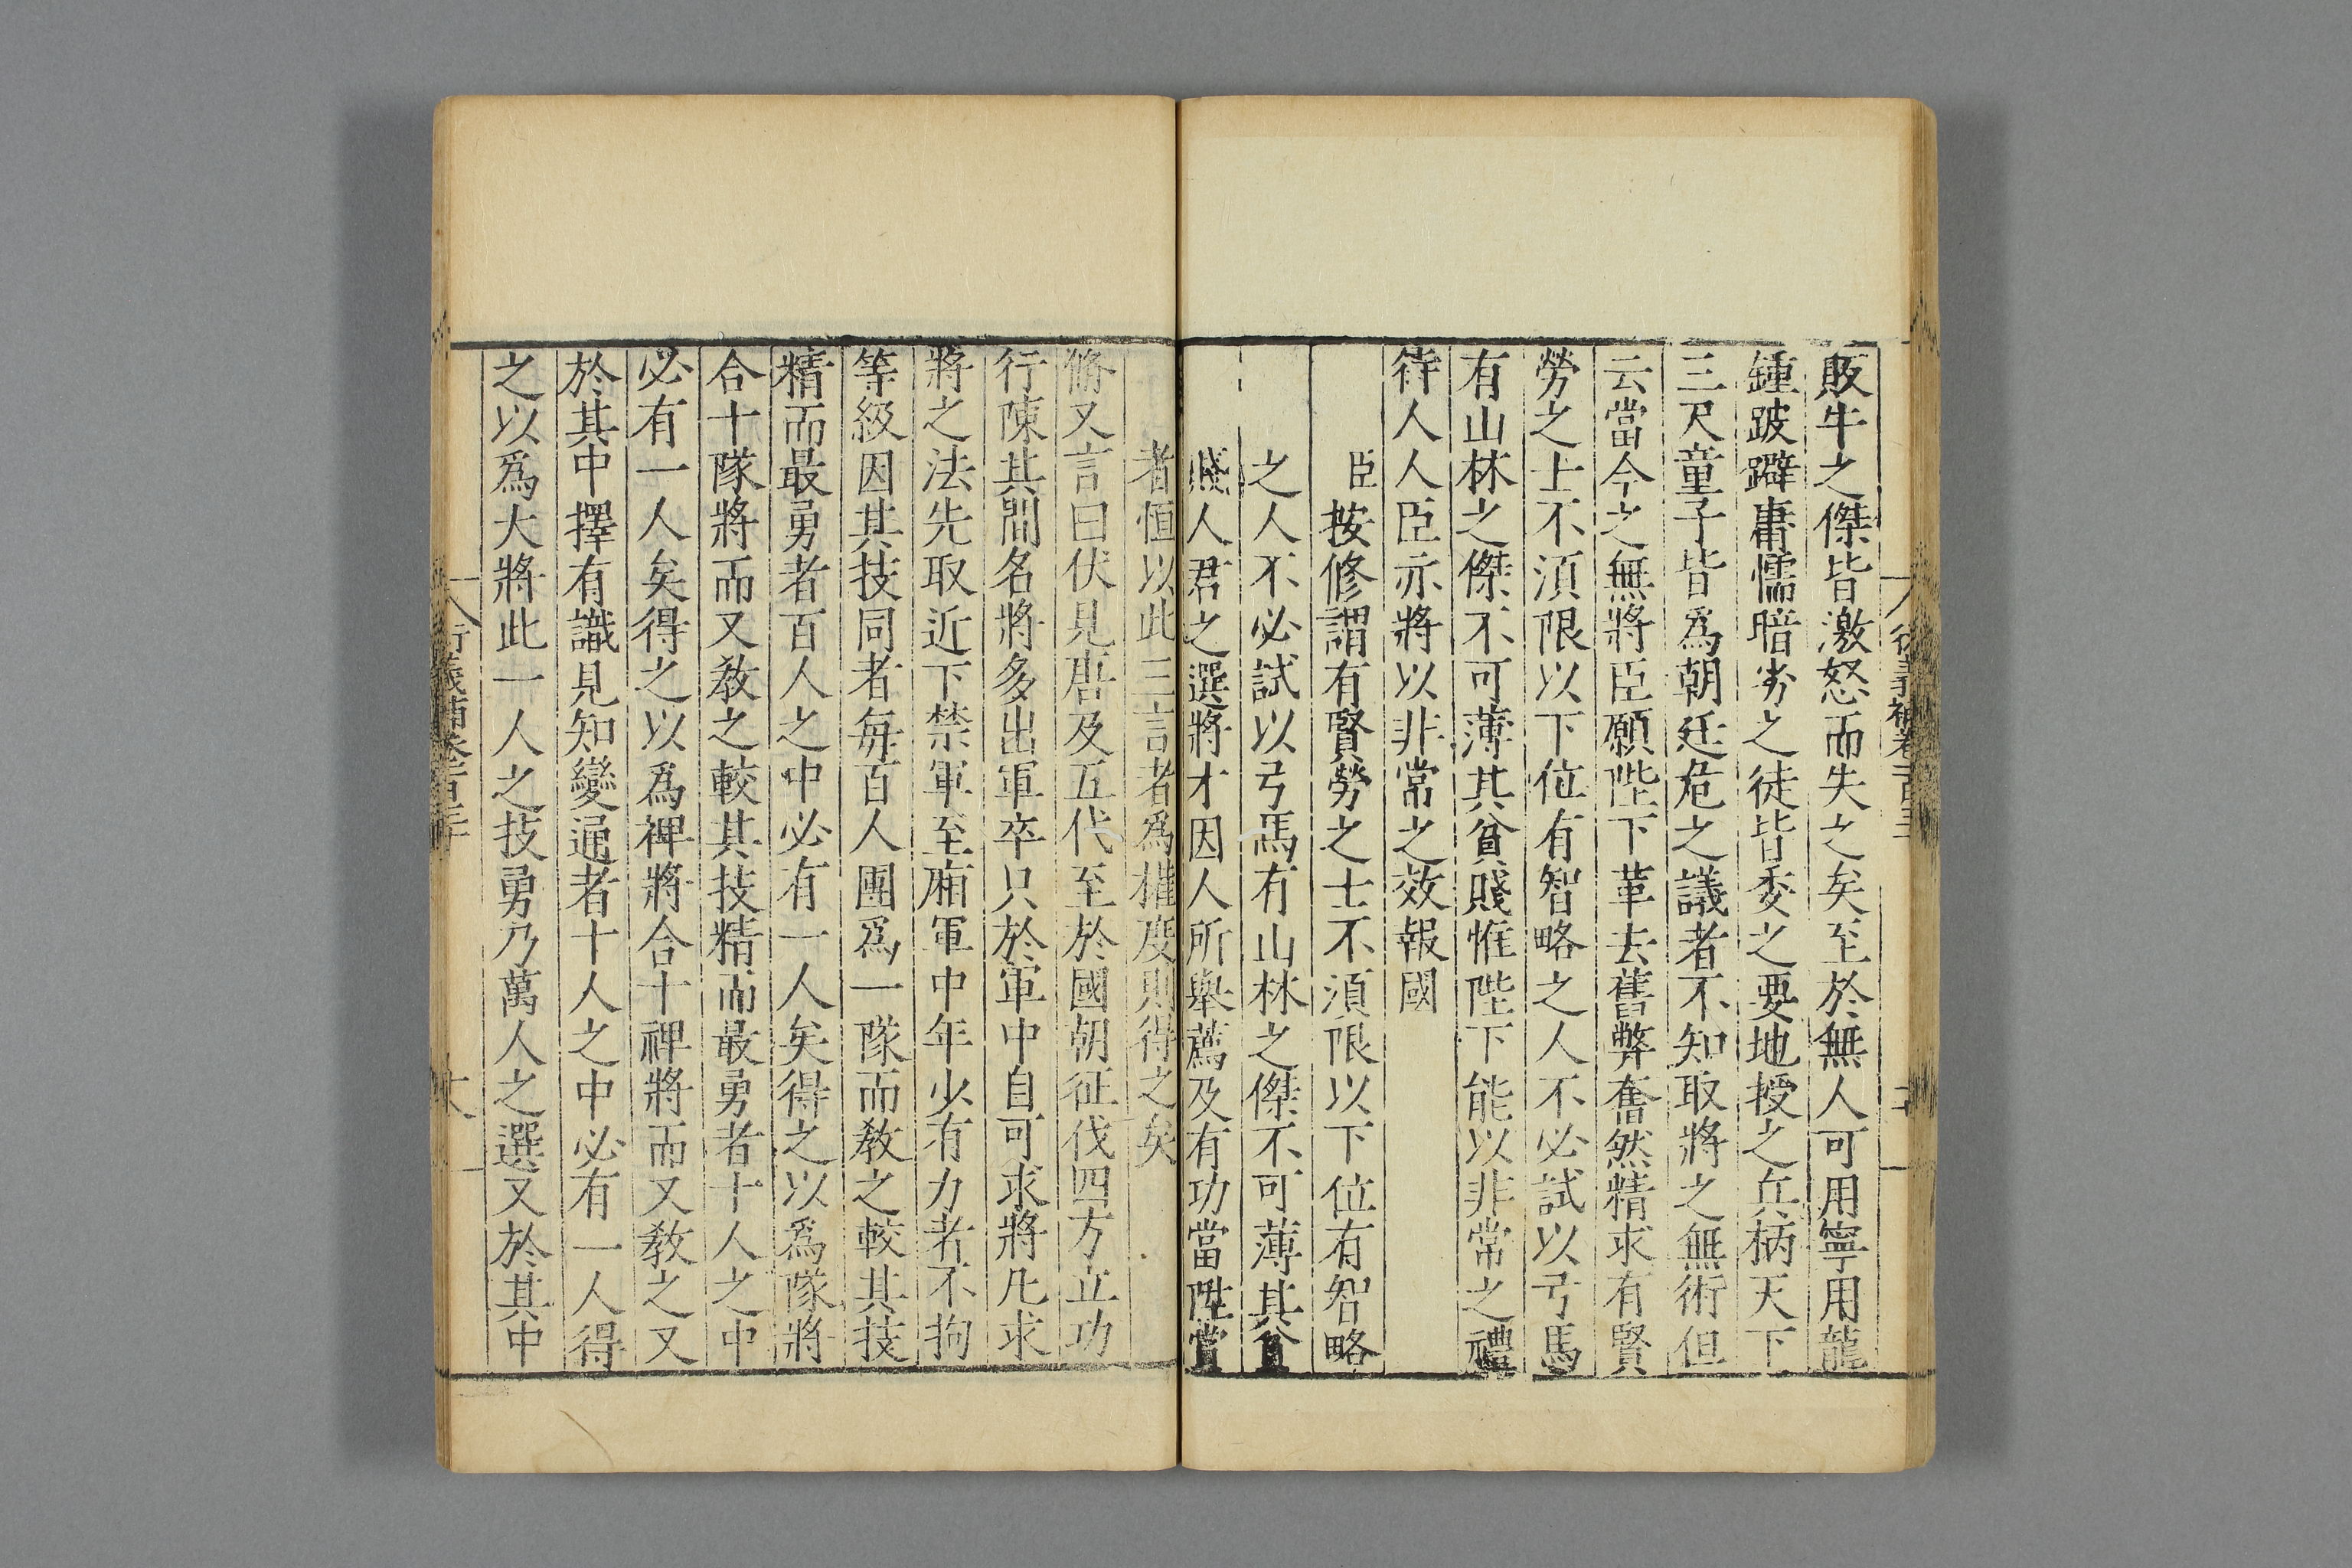 販牛之傑皆激怒而失之矣至於無人可用寧用龍
鍾跛躃庸懦暗劣之徒皆委之要地授之兵柄天下
三尺童子皆爲朝廷危之議者不知取將之無術但
云當今之無將臣願陛下革去舊弊奮然精求有賢
勞之士不須限以下位有智略之人不必試以弓馬
有山林之傑不可薄其貧賤惟陛下能以非常之禮
待人人臣亦將以非常之效報國
臣按修謂有賢勞之士不須限以下位有智略
之人不必試以弓馬有山林之傑不可薄其貧
賤人君之選將才因人所舉薦及有功當陞賞
者恒以此三言者爲權度則得之矣
脩又言曰伏見唐及五代至於國朝征伐四方立功
行陳其間名將多出軍卒只於軍中自可求將凡求
將之法先取近下禁軍至廂軍中年少有力者不拘
等級因其技同者每百人團爲一隊而教之較其技
精而最勇者百人之中必有一人矣得之以爲隊將
合十隊將而又教之較其技精而最勇者十人之中
必有一人矣得之以爲裨將合十裨將而又教之又
於其中擇有識見知變通者十人之中必有一人得
之以爲大將此一人之技勇乃萬人之選又於其中